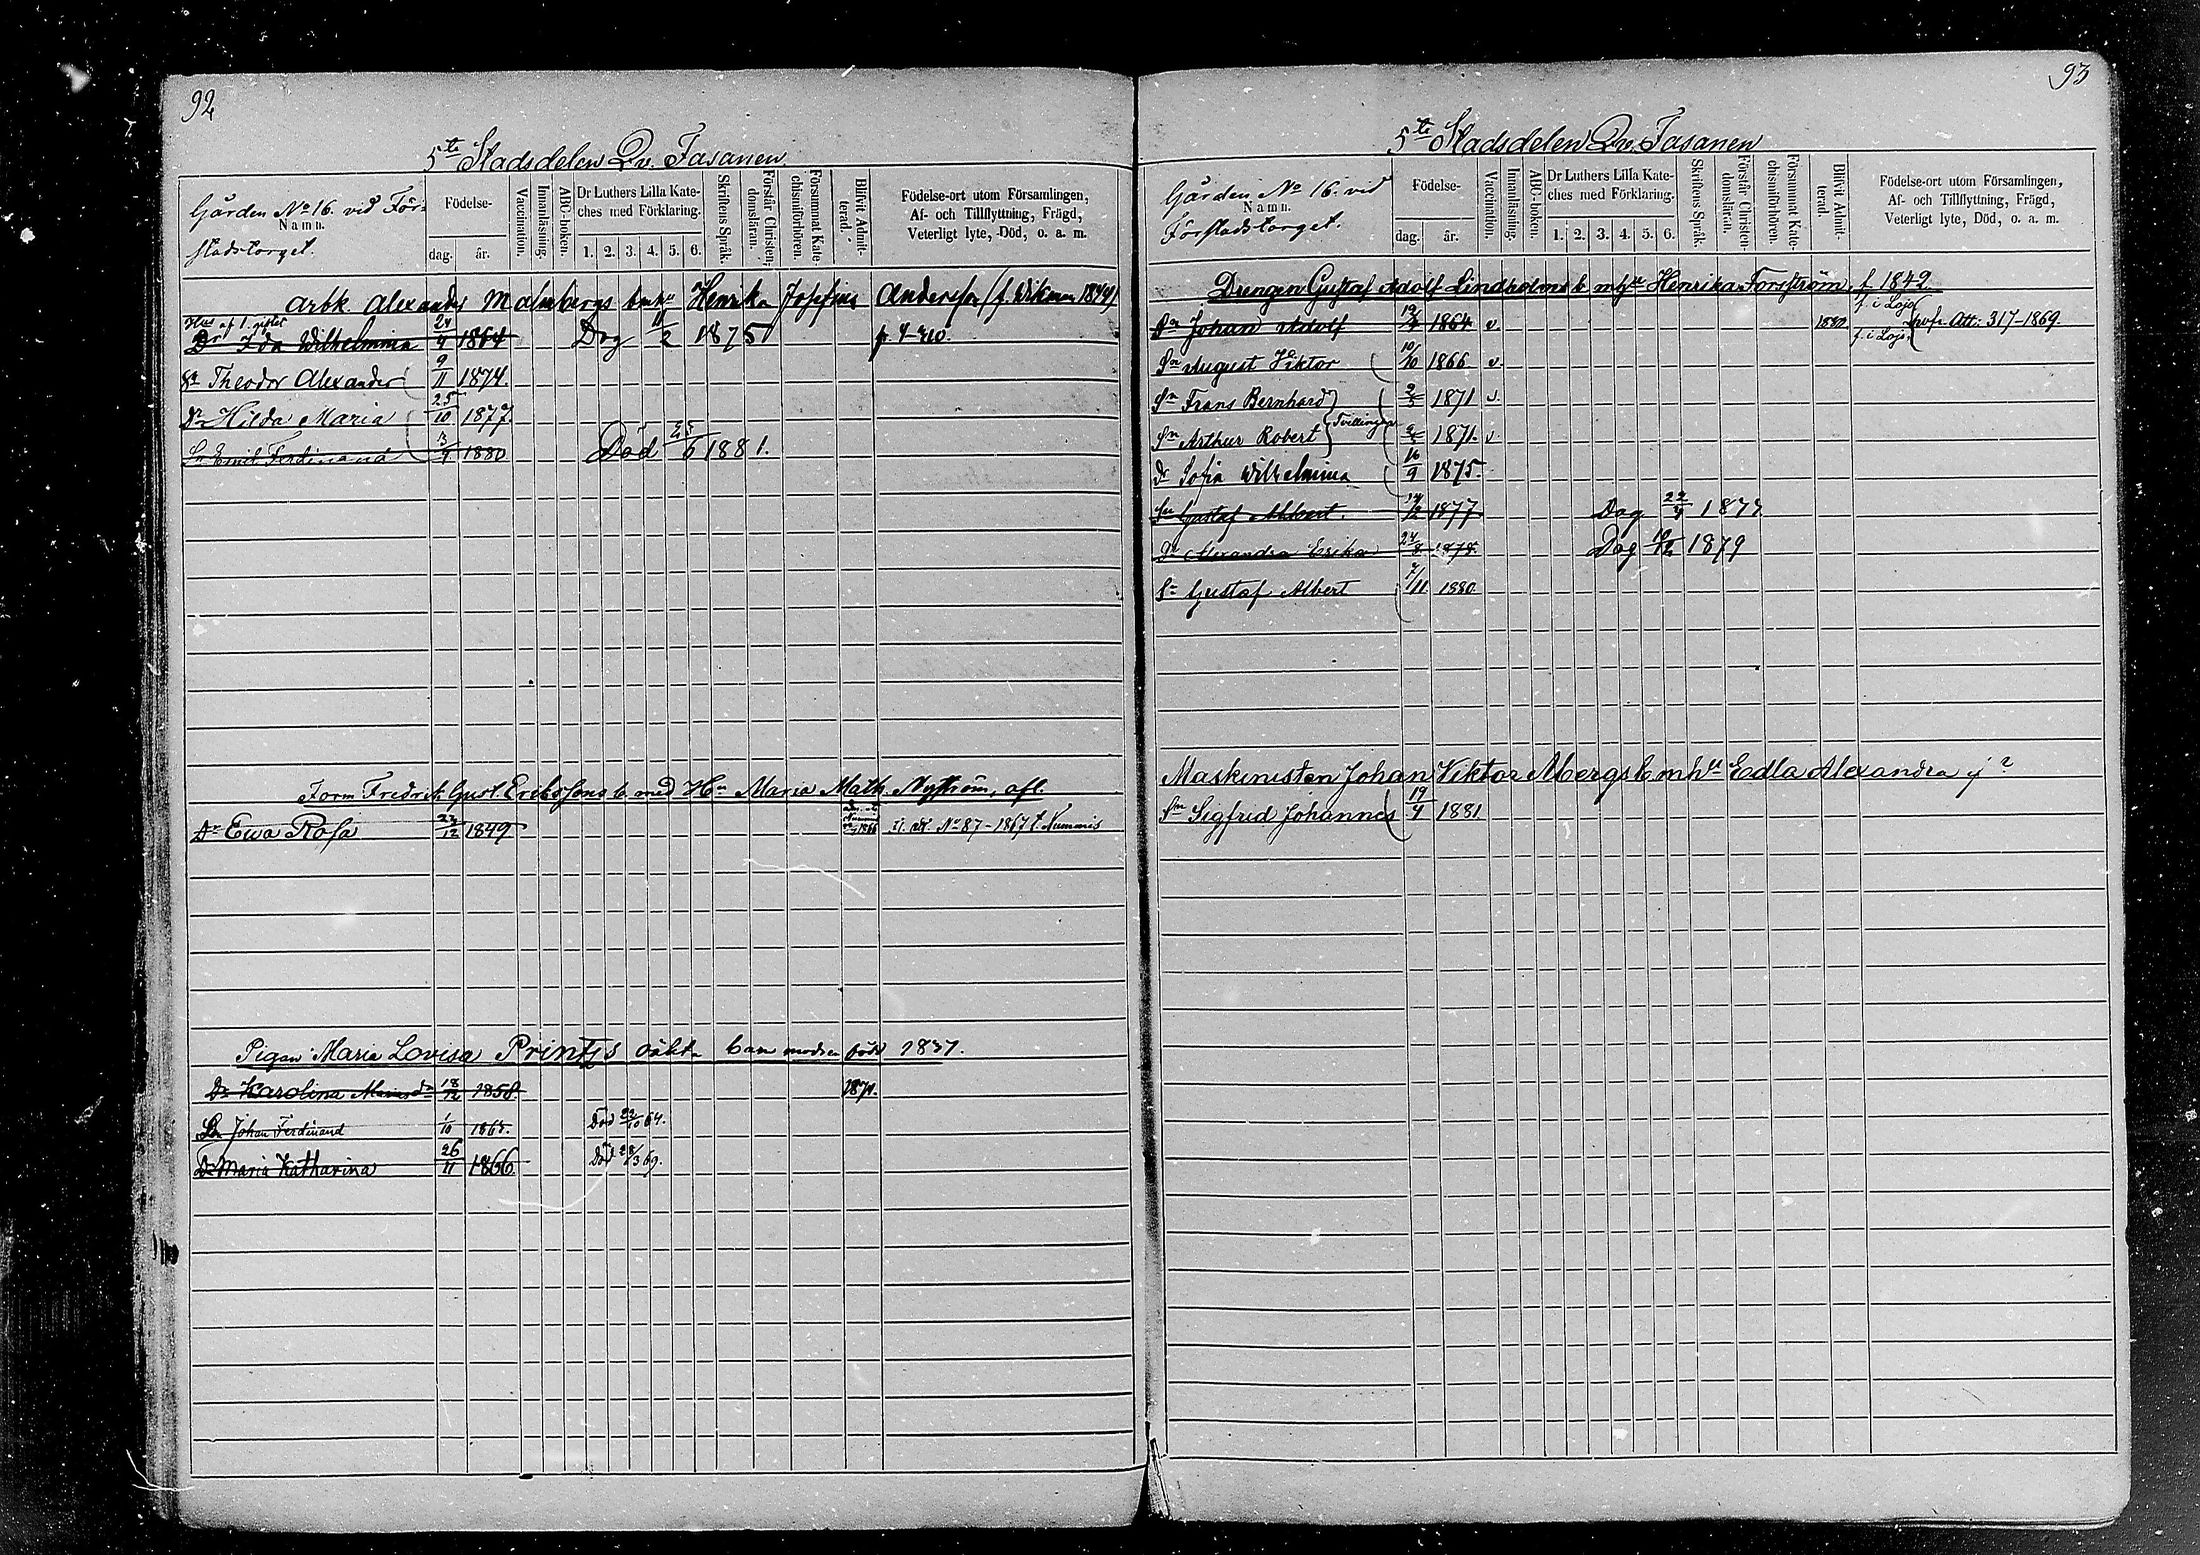 92
5te Stadsdelen Qv. Fasanen
Gården No 16. vid För-
Namn.
stadstorget.
Födelse-
dag. år.
Vaccination.
Innanläsning.
ABC-boken.
Dr Luthers Lilla Kate-
ches med Förklaring.
1. 2. 3. 4. 5. 6.
Skriftens Språk.
Förstår Christen-
domsläran.
Försummat Kate-
chismiförhören.
Blifvit Admit-
terad.
Födelse-ort utom Församlingen,
Af- och Tillflyttning, Frägd,
Veterligt lyte, Död, o. a. m.
Arbk. Alexander Malmbergs bmhu Henrika Josefina Andersson (f. Wikman 1844)
af 1. giftet
Dr Ida Wilhelmina 24/4 1864 Dog 11/2 1875
Sn Theodor Alexander 9/11 1874.
Dr Hilda Maria 25/10 1877.
Sn Emil Ferdinand 13/4 1880 Död 25/6 1881.
Form Fredrik Gust. Erikssons b med Hu Maria Math. Nyström, afl.
Dr Ewa Rosa 23/12 1849 1866 No 87-1867 t. Nummis
Pigan Maria Lovisa Printzs oäkta barn modren född 1837.
Dr Karolina Mariasdr 18/12 1858. 1874.
Sn Johan Ferdinand 1/10 1863. Död 22/10 64.
Dr Maria Katharina 26/11 1866. Död 28/3 69.
93
5te Stadsdelen Qv. Fasanen
Gården No 16. vid
Namn.
Förstadstorget.
Födelse-
dag. år.
Vaccination.
Innanläsning.
ABC-boken.
Dr Luthers Lilla Kate-
ches med Förklaring.
1. 2. 3. 4. 5. 6.
Skriftens Språk.
Förstår Christen-
domsläran.
Försummat Kate-
chismiförhören.
Blifvit Admit-
terad.
Födelse-ort utom Församlingen,
Af- och Tillflyttning, Frägd,
Veterligt lyte, Död, o. a. m.
Drengen Gustaf Adolf Lindholms b mhu Henrika Forsström, f 1842
f. i Lojo
Sn Johan Adolf 19/4 1864 v Att: 317-1869.
f. i Lojo
Sn August Viktor 10/10 1866. v.
Sn Frans Bernhard 2/5 1871 v.
Tvillingar
Sn Arthur Robert 2/5 1871. v
Dr Sofia Wilhelmina 16/9 1875.
Sn Gustaf Albert. 14/12 1877 Dog 22/4 1877
Dr Alexandra Erika 24/8 1878. Dog 10/12 1879
Sn Gustaf Albert 7/11 1880.
Maskinisten Johan Viktor Åbergs b mhu Edla Alexandra f ?
Sn Sigfrid Johannes 19/4 1881